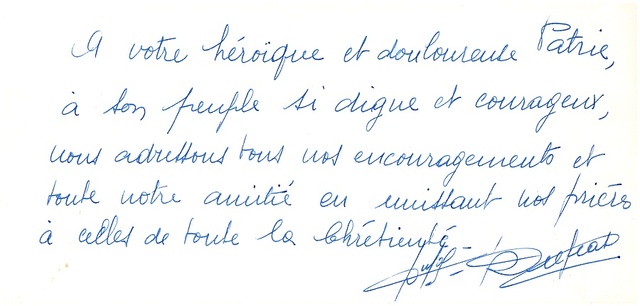 A votre héroïque et douloureuse Patrie,
à son peuple si digne et courageux,
nous adressons tous nos encouragements et
toute notre amitié en unissant nos prières
à celles de toute la Chrétienté